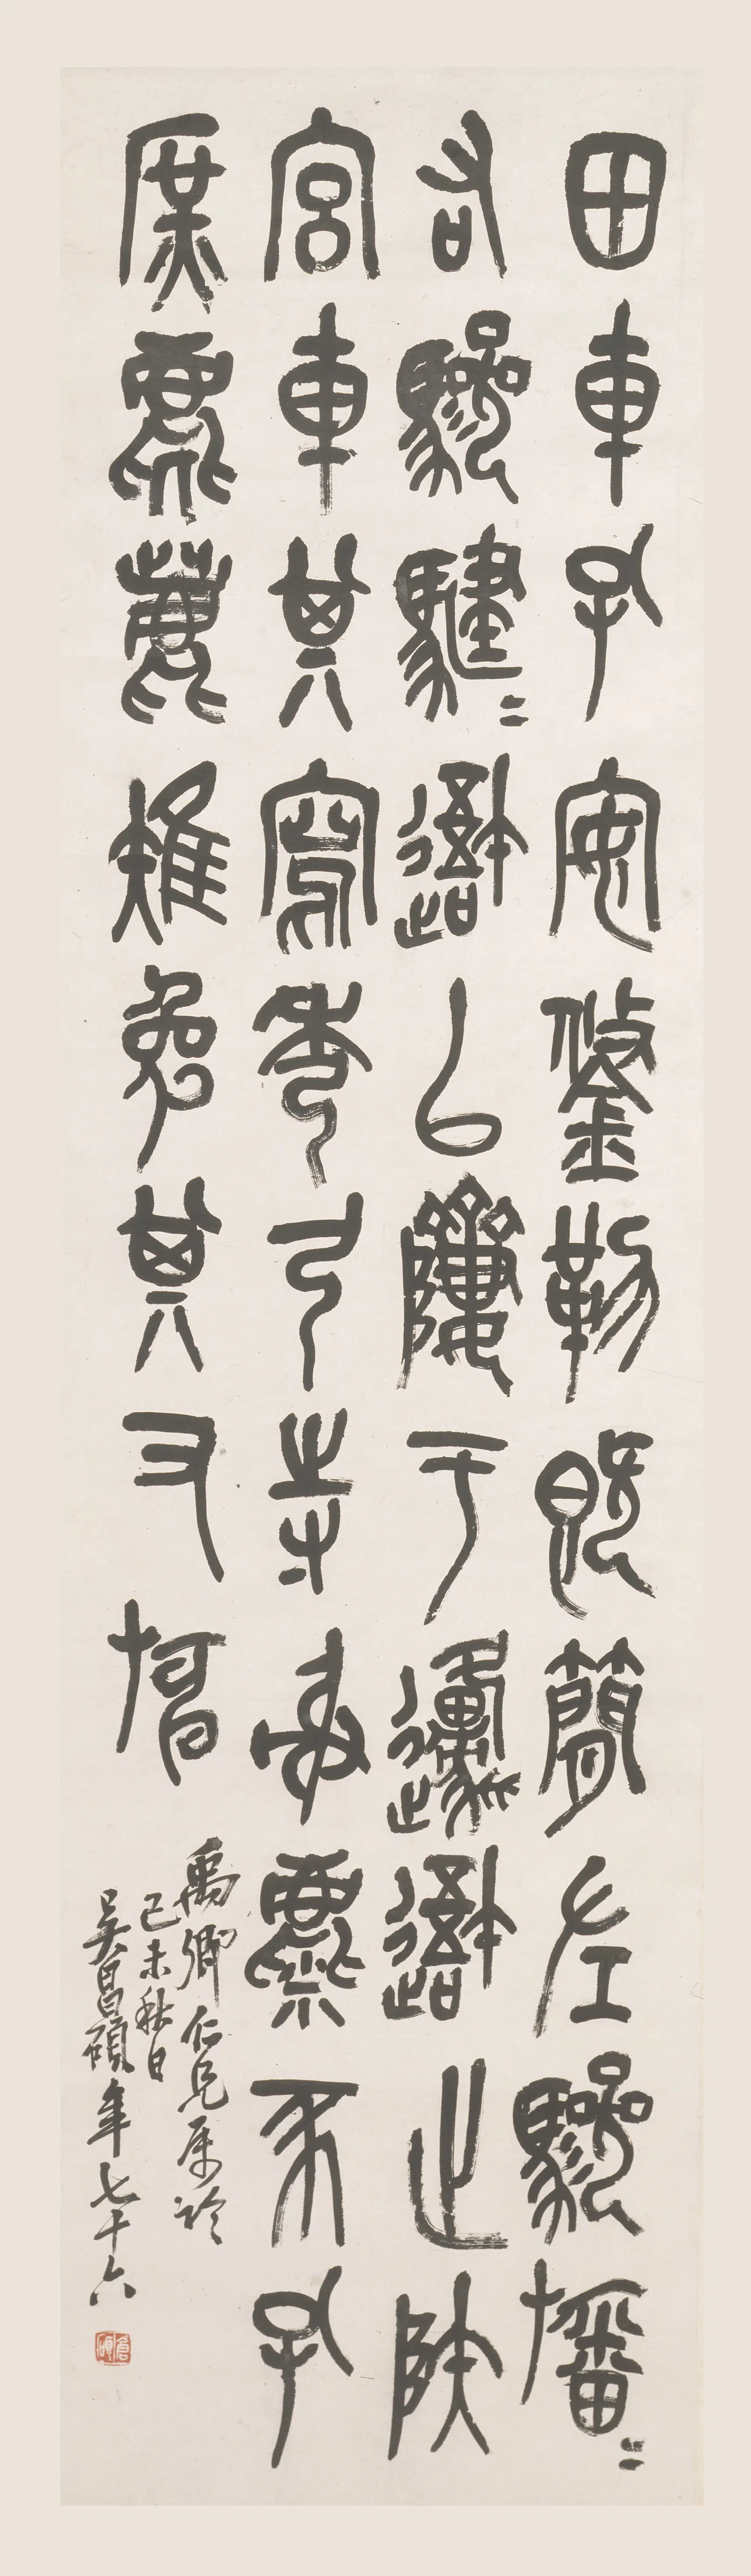 田車孔安鋚勒既簡左驂旛〻
右驂騝〻䢩以隮于邍䢩止陜
宮車其寫秀弓寺射麋豕孔
庶麀鹿雉兔其又旃
禹卿仁兄属詅
己未秋日
吳昌碩年七十六
倉碩